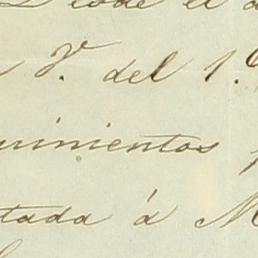 Desde el
V. del 1.º
uimientos
tada á M